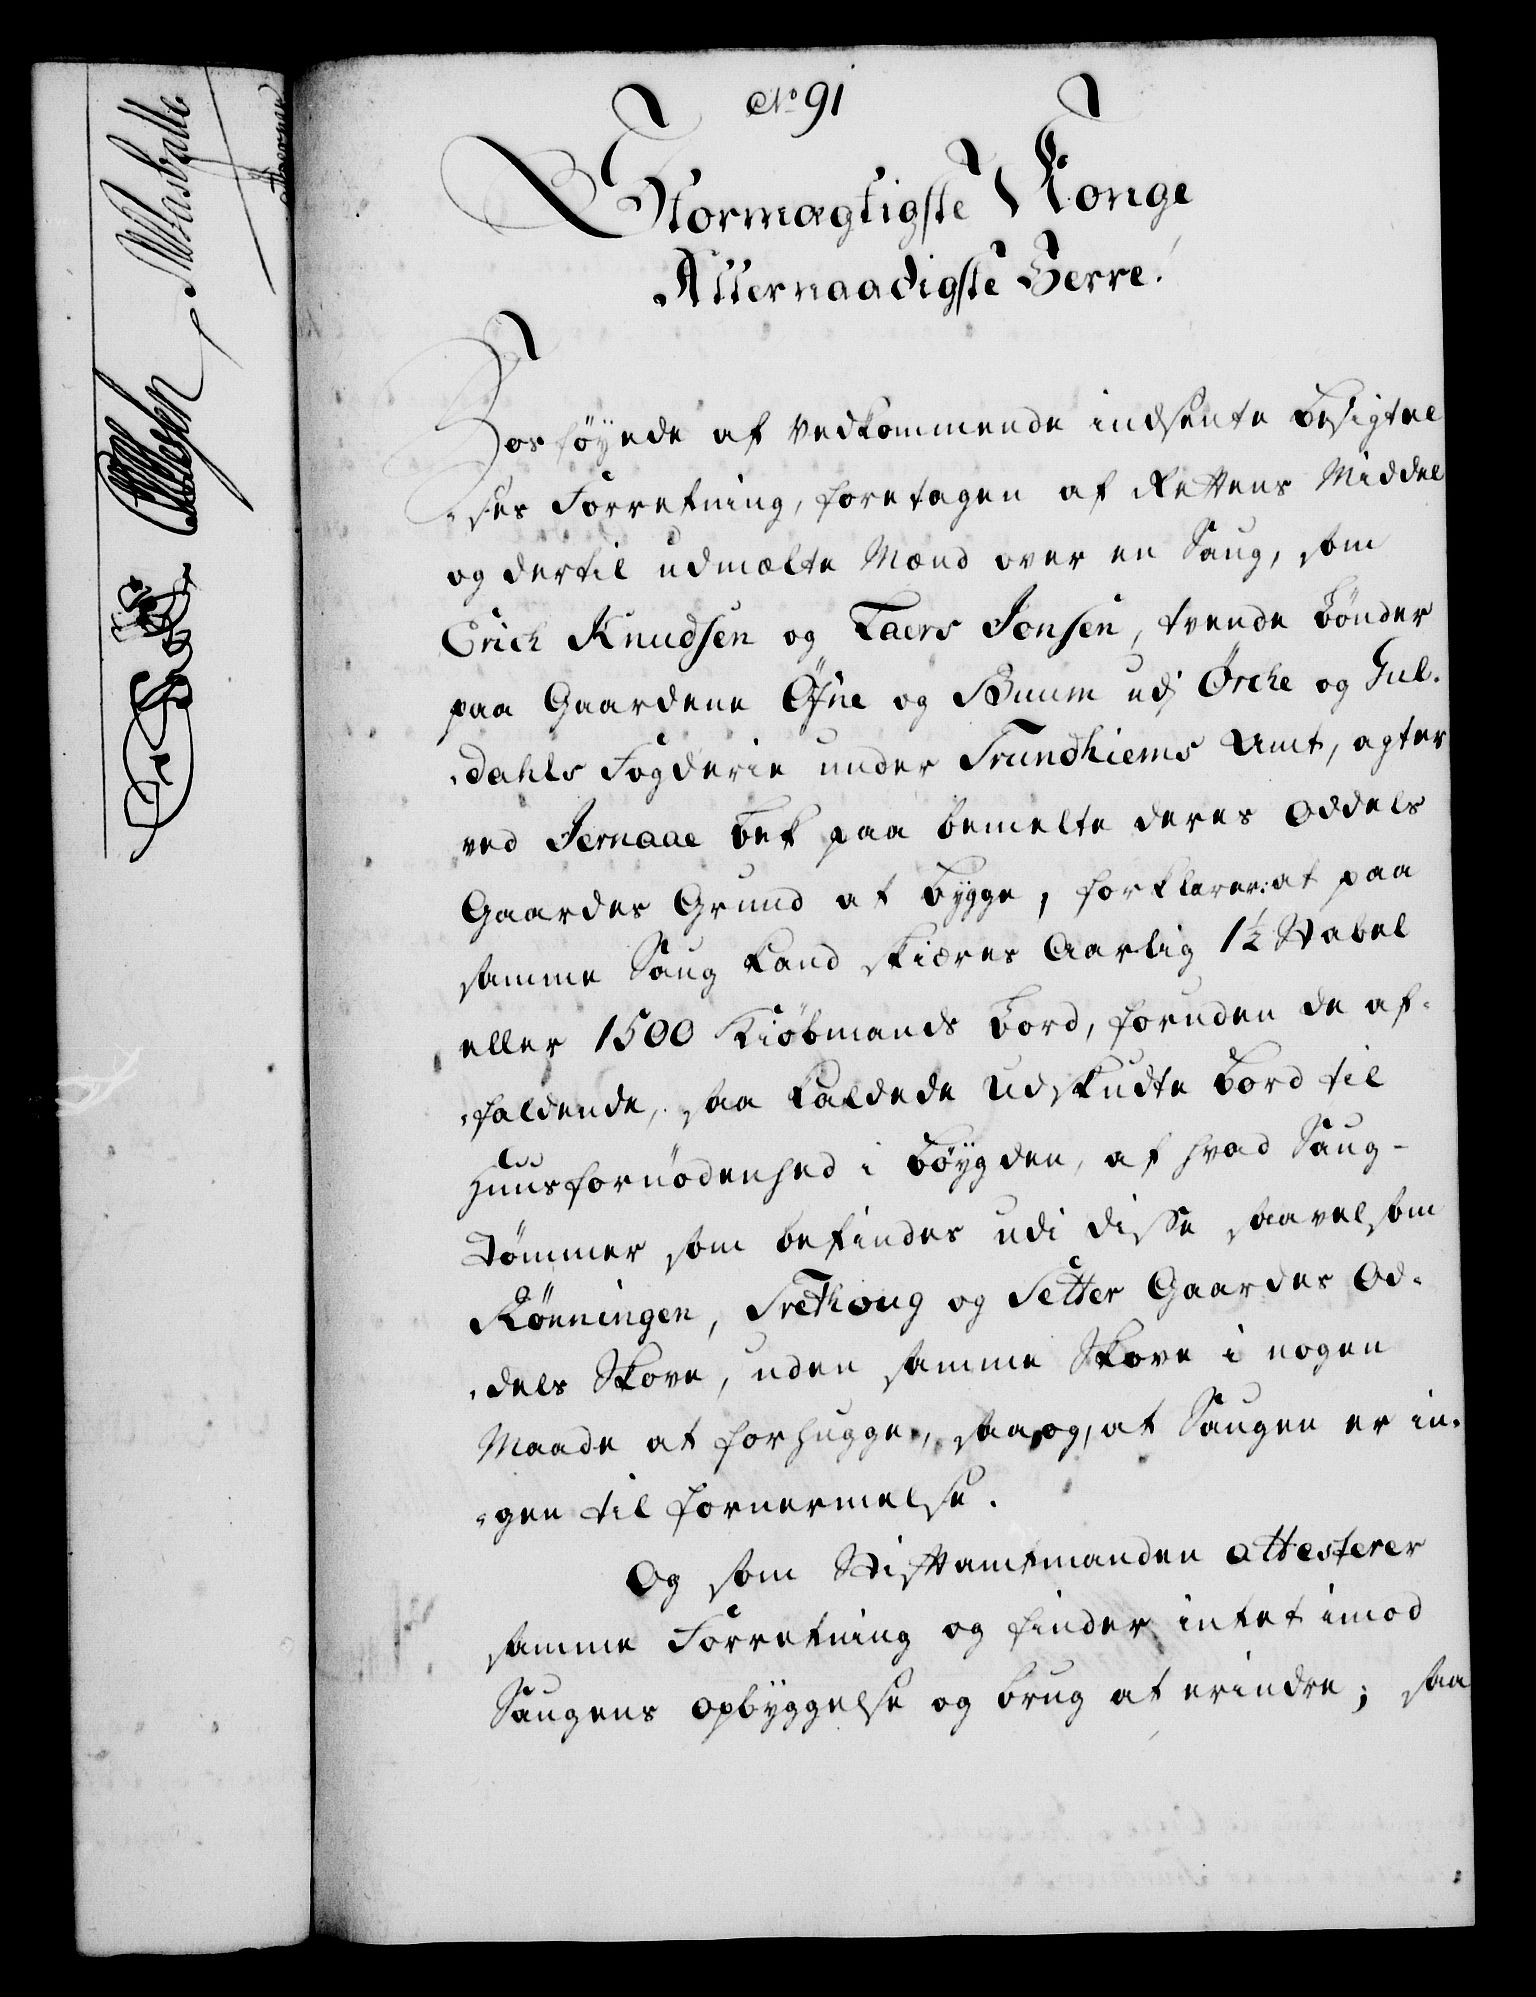 No 91
Stormægtigste Konge
Allernaadigste Herre!
Hosføyede af Vedkommende indsente Besigtel
ses Forretning, foretagen af Rettens Middel
og dertil udmælte Mænd over en Saug, som
Erich Knudsen og Laers Jonsen, tvende Bønder
paa Gaardene Öfne og Buum udj Örche og Gul-
dahls Fogderie under Trundhiems Amt, agter
ved Jernaae Bek paa bemelte deres Oddels
Gaardes Grund at bygge, forklarer: at paa
samme Saug kand skiæres Aarlig 1½ Stabel
eller 1500 Kiøbmands Bord, foruden de af-
faldende, saa kaldede Udskudte Bord til
Huusfornödenhed i Böygden, af hvad Saug-
Tömmer som befindes udi disse saavelsom
Rönningen, Trethoug og Setter Gaardes Od-
dels Skove, uden samme Skove i nogen
Maade at forhugge, saa og, at Saugen er in-
gen til fornermelse.
Og som Stiftamtmanden attesterer
samme Forretning og finder intet imod
Saugens opbyggelse og brug at erindre; saa